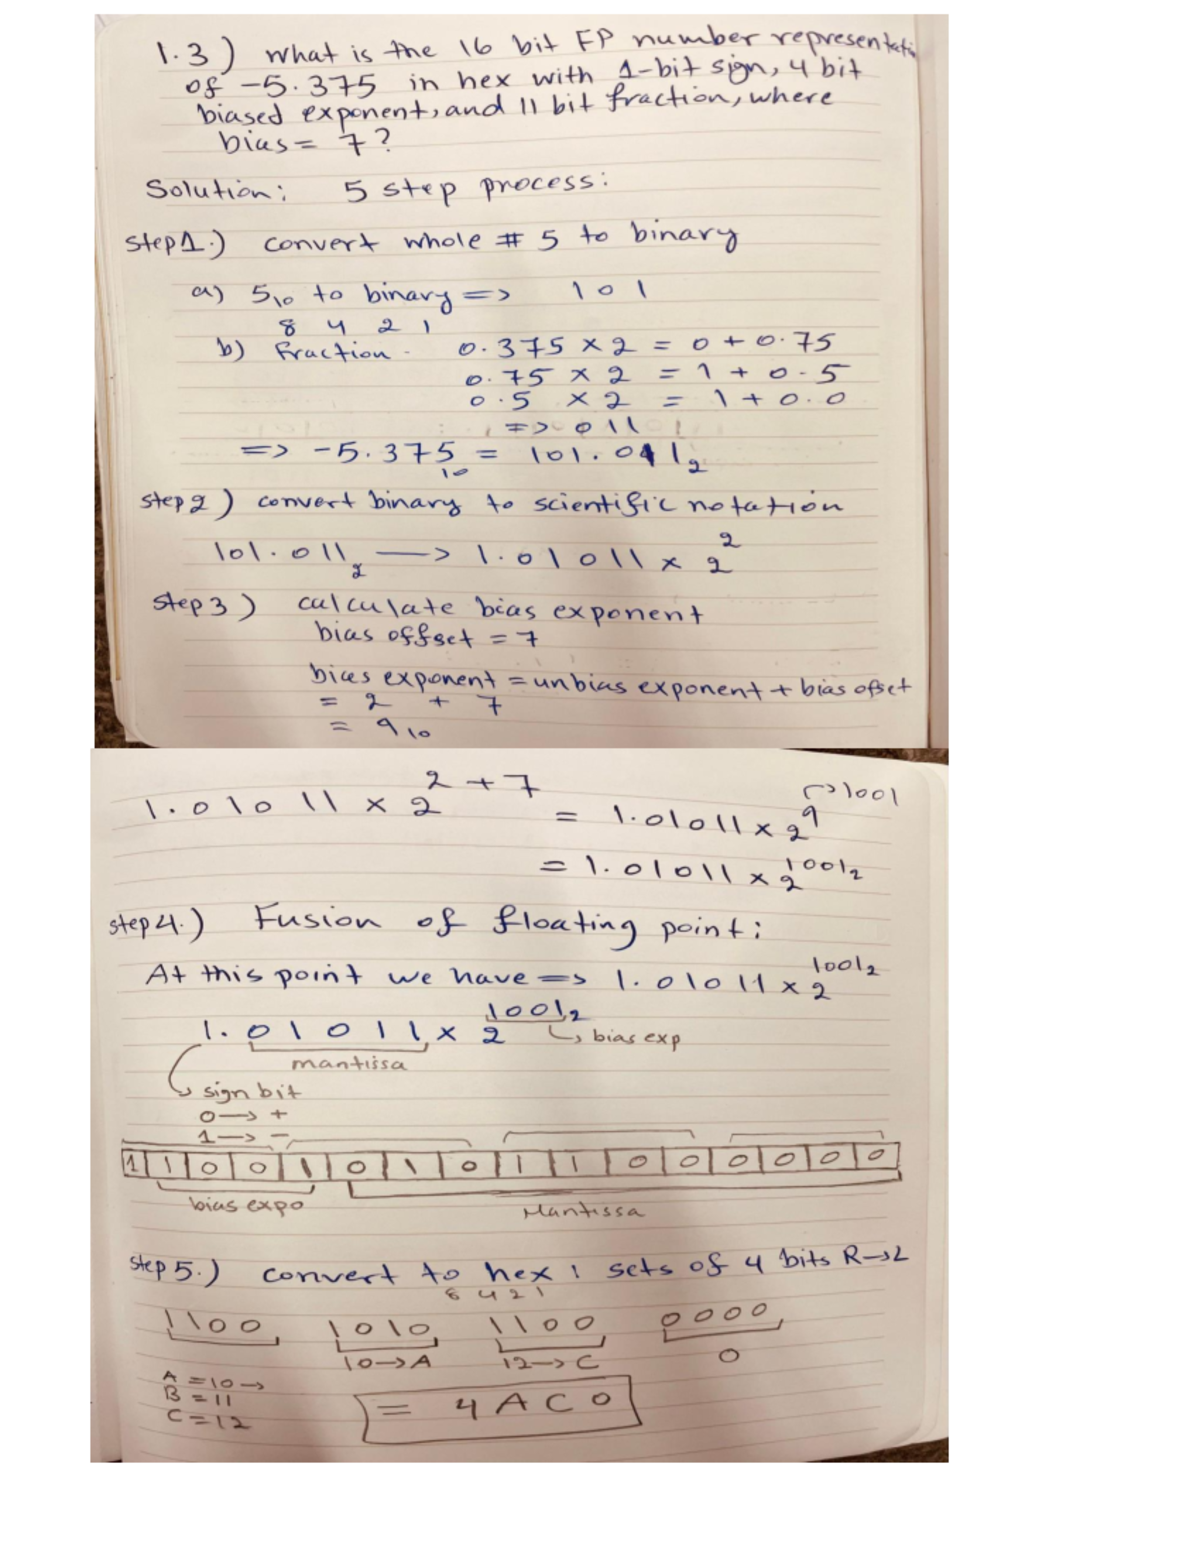 1.3) What is the 16 bit FP number representati
of -5.375 in hex with 1-bit sign, 4 bit
biased exponent, and 11 bit fraction, where
bias = 7?
Solution: 5 step process:
Step1.) convert whole # 5 to binary
a) 5₁₀ to binary => 1 0 1
8 4 2 1
b) Fraction - 0.375 x 2 = 0 + 0.75
0.75 x 2 = 1 + 0.5
0.5 x 2 = 1 + 0.0
=> 011
=> -5.375₁₀ = 101.011₂
Step 2) convert binary to scientific notation
101.011₂ —> 1.01011 x 2²
Step 3) calculate bias exponent
bias offset = 7
bias exponent = unbias exponent + bias ofset
= 2 + 7
= 9₁₀
1.01011 x 2²⁺⁷ = 1.01011 x 2⁹ -> 1001
= 1.01011 x 2^1001₂
Step 4.) Fusion of floating point:
At this point we have => 1.01011 x 2^1001₂
1.01011 x 2^1001₂ -> bias exp
mantissa
-> sign bit
0 —> +
1 —> -
1 1 0 0 1 0 1 0 1 1 0 0 0 0 0 0
bias expo Mantissa
Step 5.) convert to hex : sets of 4 bits R->L
8 4 2 1
1100 1010 1100 0000
10->A 12->C 0
A = 10 ->
B = 11
C = 12
= 4AC0